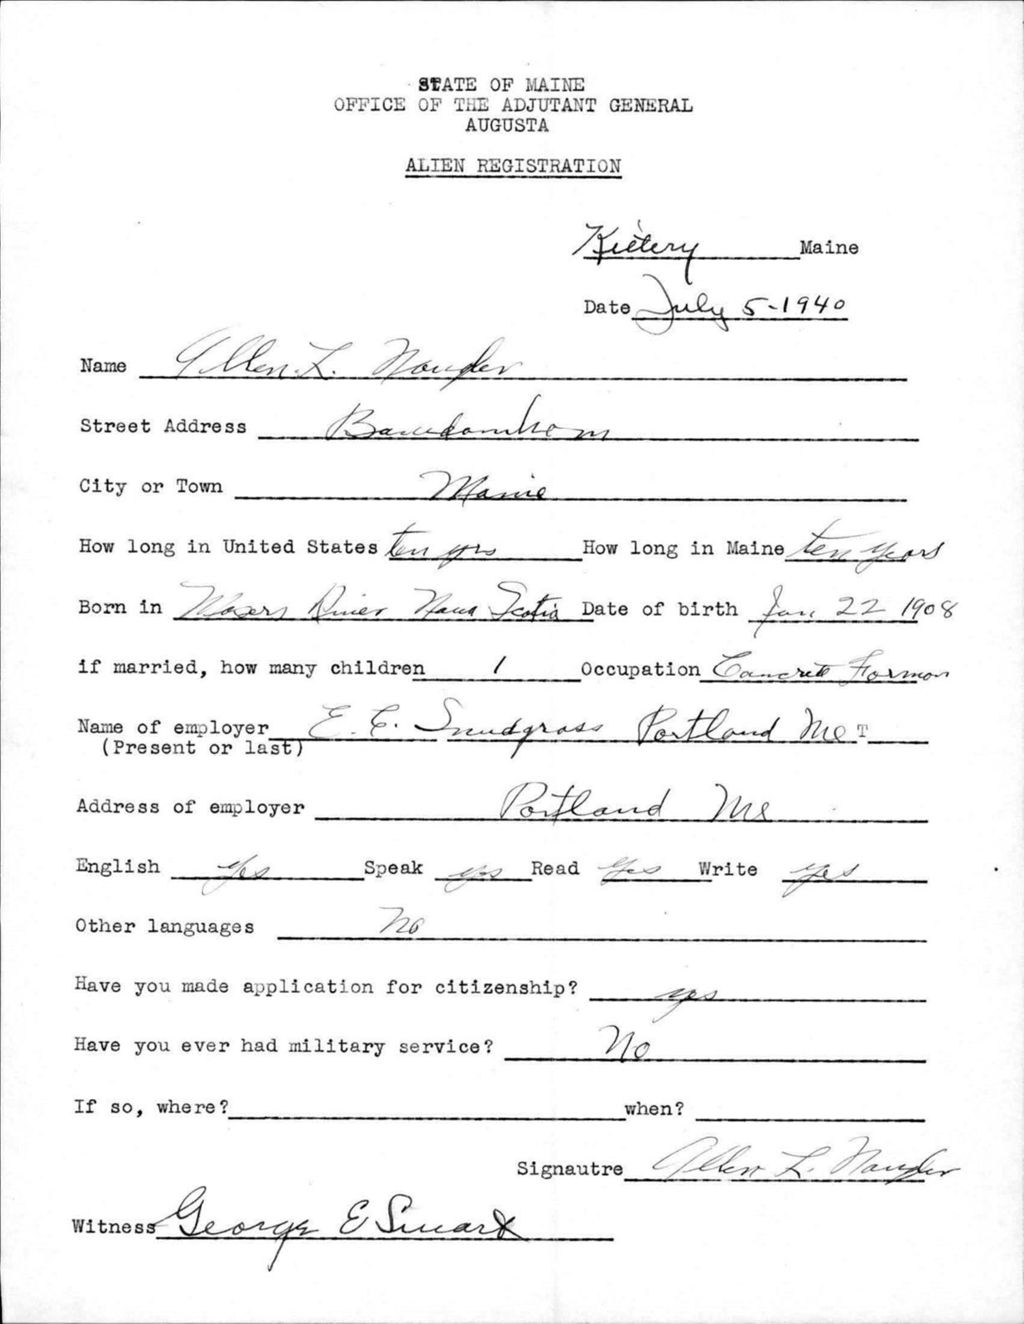 STATE OF MAINE
OFFICE OF THE ADJUTANT GENERAL
AUGUSTA
ALIEN REGISTRATION
Kittery Maine
Date July 5-1940
Name Allen L. Naugler
Street Address
City or Town Maine
How long in United States ten yrs How long in Maine ten years
Born in Mosers River Nova Scotia Date of birth Jan 22 1908
if married, how many children 1 Occupation Concrete Forman
Name of employer E. C. Snodgrass Portland Me T
(Present or last)
Address of employer Portland Me
English yes Speak yes Read yes Write yes
Other languages No
Have you made application for citizenship? yes
Have you ever had military service? No
If so, where? when?
Signautre Allen L. Naugler
Witness George E Swart